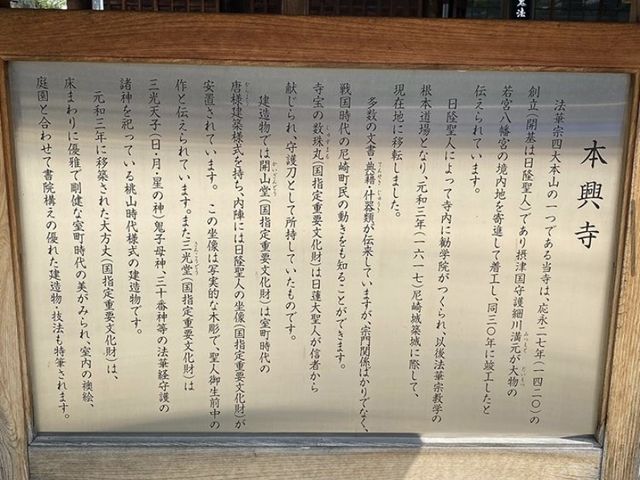 本興寺
法華宗四大本山の一つである当寺は、応永二七年(一四二〇)の
創立(開基は日隆聖人)であり摂津国守護細川満元が大物の
若宮八幡宮の境内地を寄進して着工し、同三〇年に竣工したと
伝えられています。
日隆聖人によって寺内に勧学院がつくられ、以後法華宗教学の
根本道場となり、元和三年(一六一七)尼崎城築城に際して、
現在地に移転しました。
多数の文書・典籍・什器類が伝来していますが、宗門関係ばかりでなく、
戦国時代の尼崎町民の動きをも知ることができます。
寺宝の数珠丸(国指定重要文化財)は日蓮大聖人が信者から
献じられ、守護刀として所持していたものです。
建造物では開山堂(国指定重要文化財)は室町時代の
唐様建築様式を持ち、内陣には日隆聖人の坐像(国指定重要文化財)が
安置されています。この坐像は写実的な木彫で、聖人御生前中の
作と伝えられています。また三光堂(国指定重要文化財)は
三光天子(日・月・星の神)鬼子母神、三十番神等の法華経守護の
諸神を祀っている桃山時代様式の建造物です。
元和三年に移築された大方丈(国指定重要文化財)は、
床まわりに優雅で剛健な室町時代の美がみられ、室内の襖絵、
庭園と合わせて書院構えの優れた建造物・技法も特筆されます。